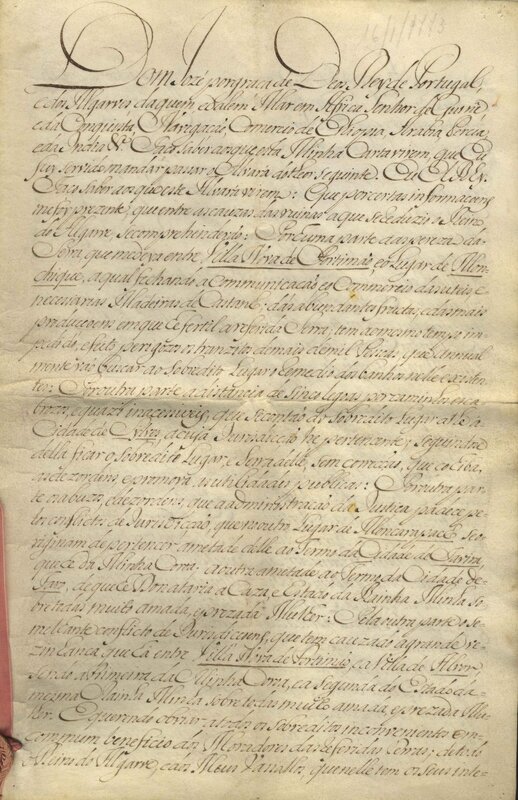 16/1/1773
Dom Jozé por graça de Deos Rey de Portugal,
e dos Algarves daquem, e dalem Mar em Africa Senhor de Guiné,
e da Conquista, Navegaçaõ, Comercio de Ethiopia, Arabia, Percia,
e da India &c. Faço saber aos que esta Minha Carta virem, que Eu
fuy servido mandar passar o Alvará do theor seguinte. Eu El Rey
Faço saber aos que este Alvara virem: Que por certas informaçoens
me foy prezente, que entre as cauzas das ruinas a que se reduzio o Reino
do Algarve, se comprehenderaõ: Por huma parte a aspereza da
Serra, que medeya entre Villa Nova de Portimaõ, e o Lugar de Mon-
chique, a qual fechando a Communicaçaõ, e o Commercio das uteis, e
necessarias Madeiras de Castanho; das abundantes frutas; e das mais
producçoens em que he fertil a referida Serra; tem ao mesmo tempo im-
pedido, e feito perigozos os tranzitos de mais de mil Pessoas, que annual-
mente vaõ buscar ao sobredito Lugar o remedio dos banhos nelle existen-
tes: Por outra parte a distancia de sinco legoas por caminhos esca-
brozos, e quazi inacessiveis, que se contaõ do sobredito Lugar athé a
Cidade de Sylves, a cuja Jurisdicçaõ he pertencente; seguindose
della ficar o sobredito Lugar, e Serra delle, sem correiçaõ, que cohiba
as dezordens, e promova as utilidades publicas: Por outra par-
te os abuzos, e dezordens, que a administraçaõ da Justiça padece pe-
lo conflicto de Jurisdicçaõ, que no outro Lugar de Moncarapacho se
originam de pertencer ametade delle ao Termo da Cidade de Tavira,
que he da Minha Coroa: a outra ametade ao Termo da Cidade de
Faro, de que he Donataria a Caza, e Estado da Rainha Minha so-
bre todas muito amada, e prezada Mulher: Pela outra parte o se-
melhante conflicto de Jurisdicçoens, que tem cauzado a grande re-
zinhança que há entre Villa Nova de Portimaõ, e a Villa de Alvor
sendo a primeira da Minha Coroa, e a segunda do Estado da
mesma Rainha Minha sobre todas muito amada, e prezada Mu-
lher. E querendo obviar a todos os sobreditos inconvenientes em
commum beneficio dos Moradores das referidas terras; de todo
o Reino do Algarve, e dos Meus Vassallos, que nelle tem os seus inte-